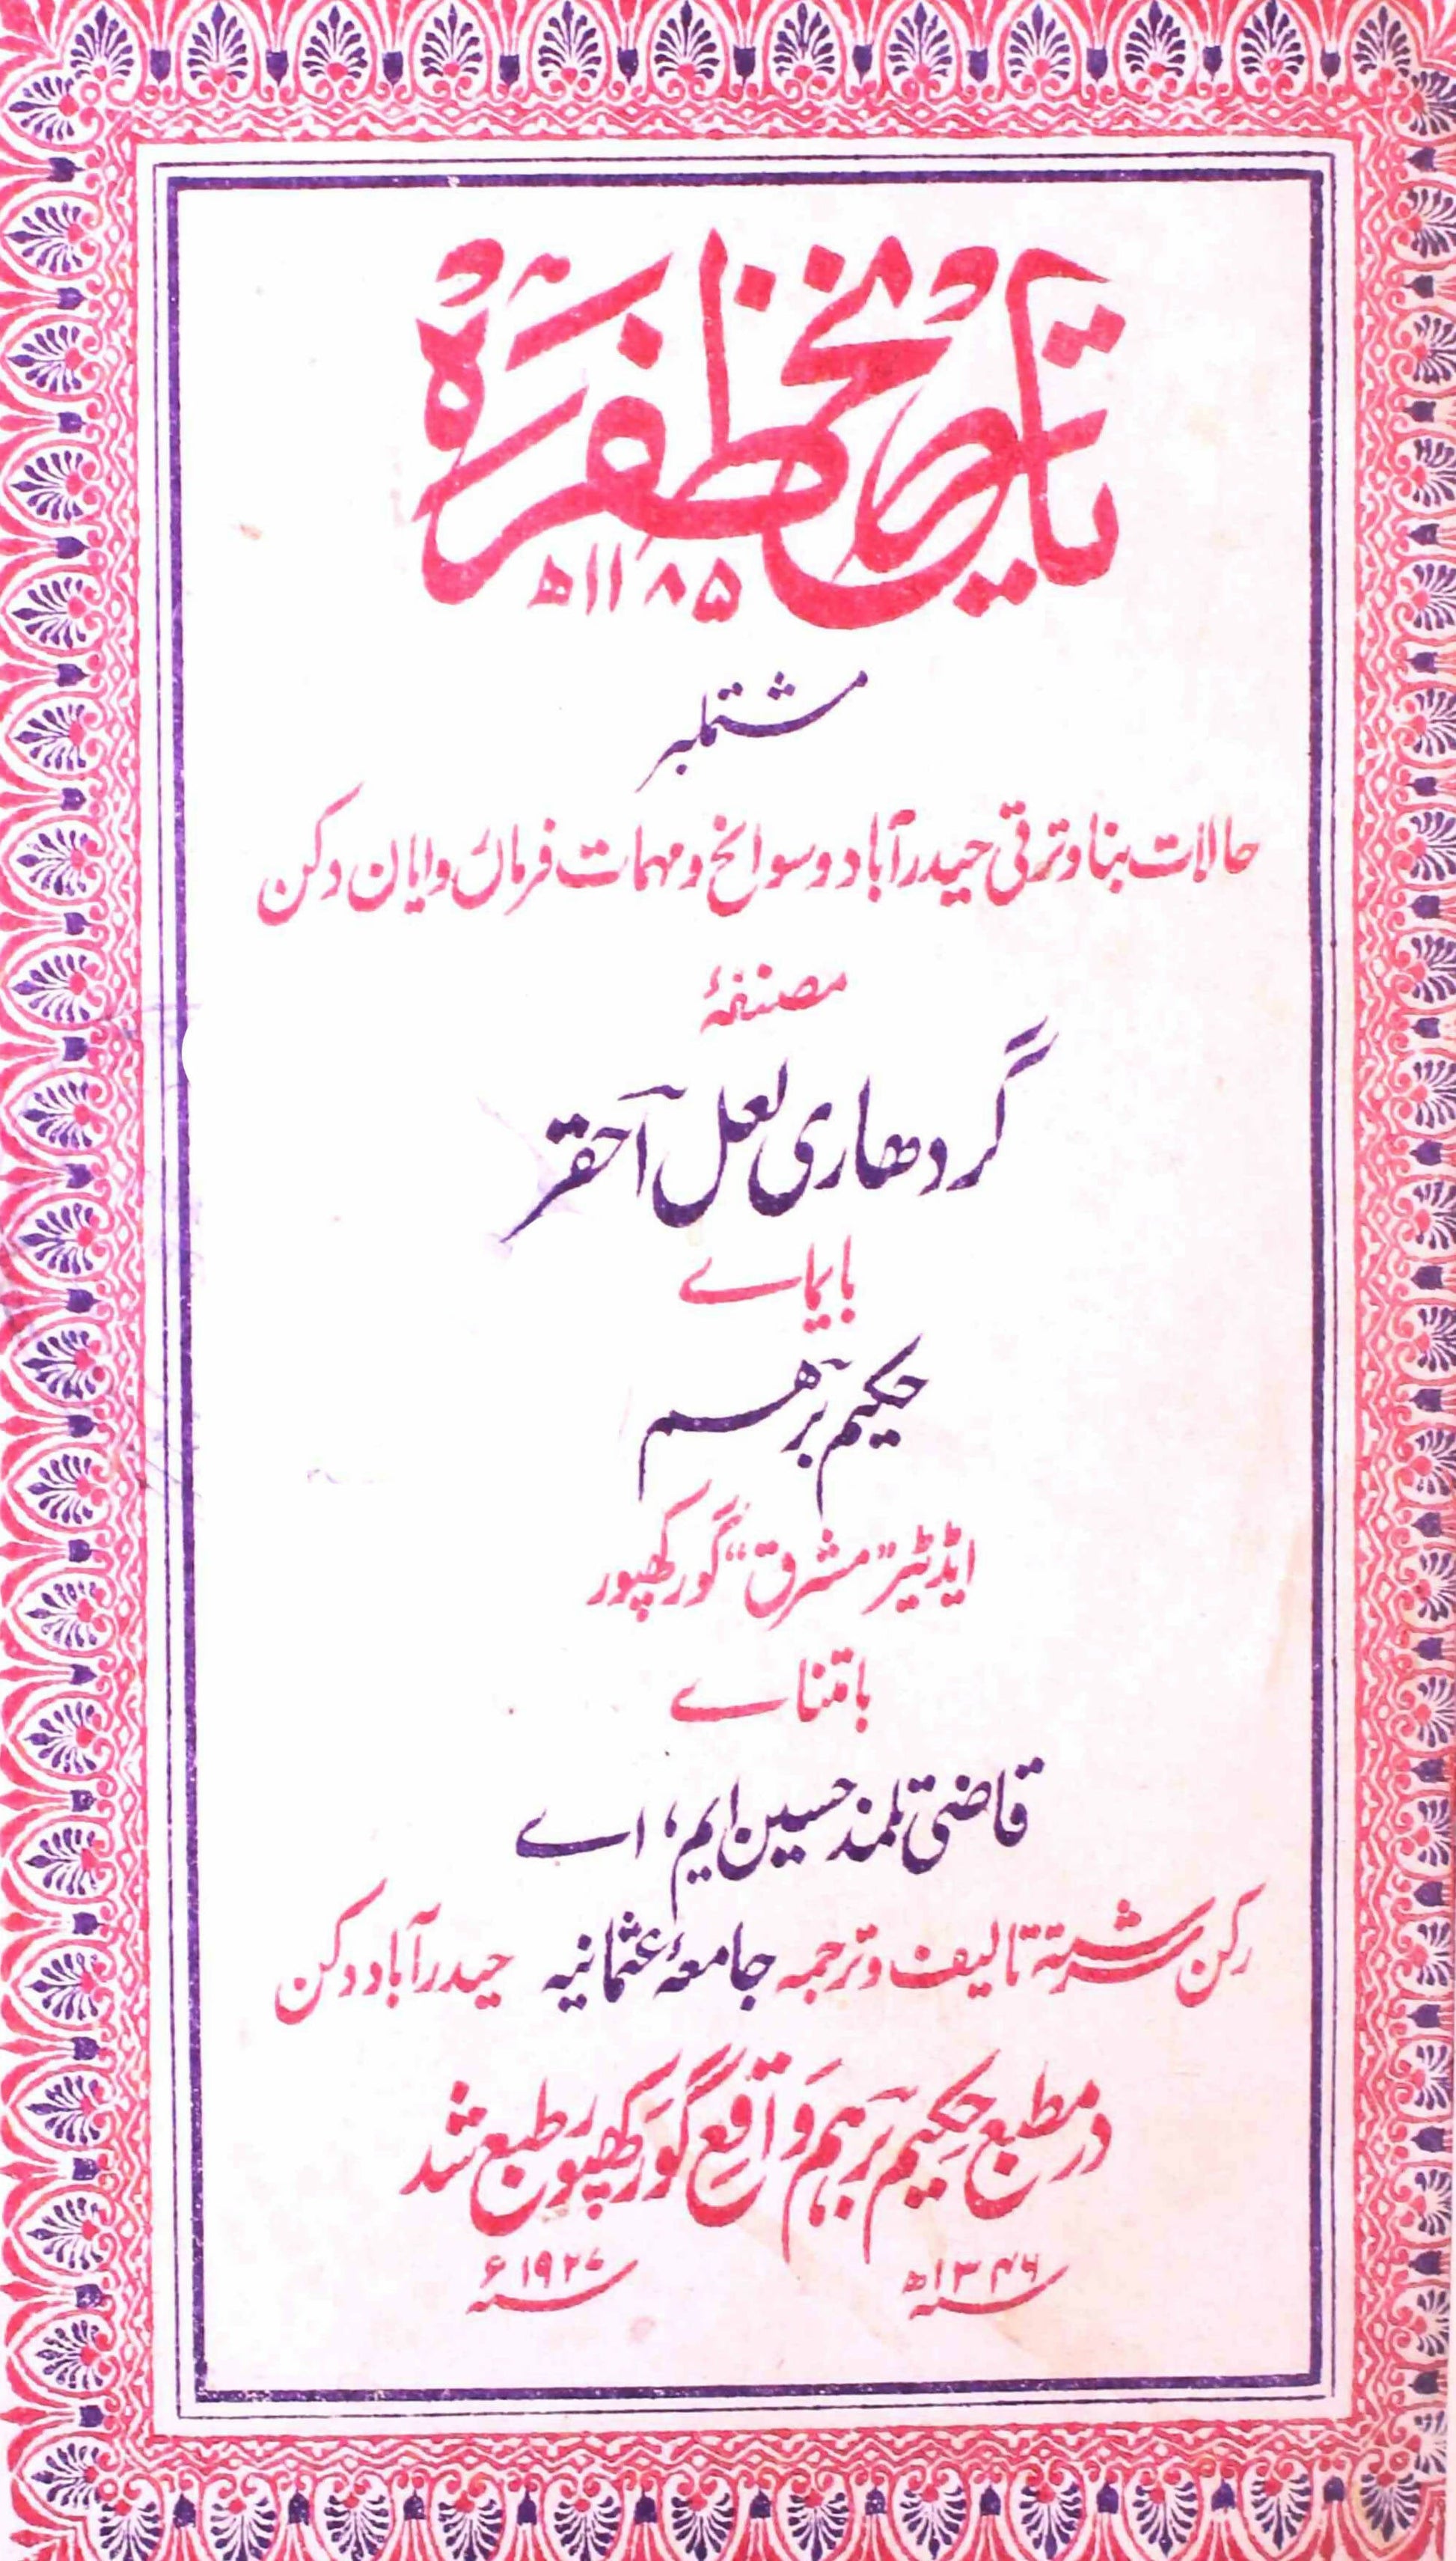 تاریخ ظفرہ
۱۱۸۵ھ
مشتملبر
حالات بنا و ترقی حیدرآباد و سوانح و مہمات فرماں روایان دکن
مصنفۂ
گردھاری لعل احقر
بایماے
حکیم برہم
ایڈیٹر "مشرق" گورکھپور
باعتناے
قاضی تلمذ حسین ایم، اے
رکن سررشتہ تالیف و ترجمہ جامعۂ عثمانیہ حیدرآباد دکن
در مطبع حکیم برہم واقع گورکھپور طبع شد
۱۳۴۶ھ ۱۹۲۷ء